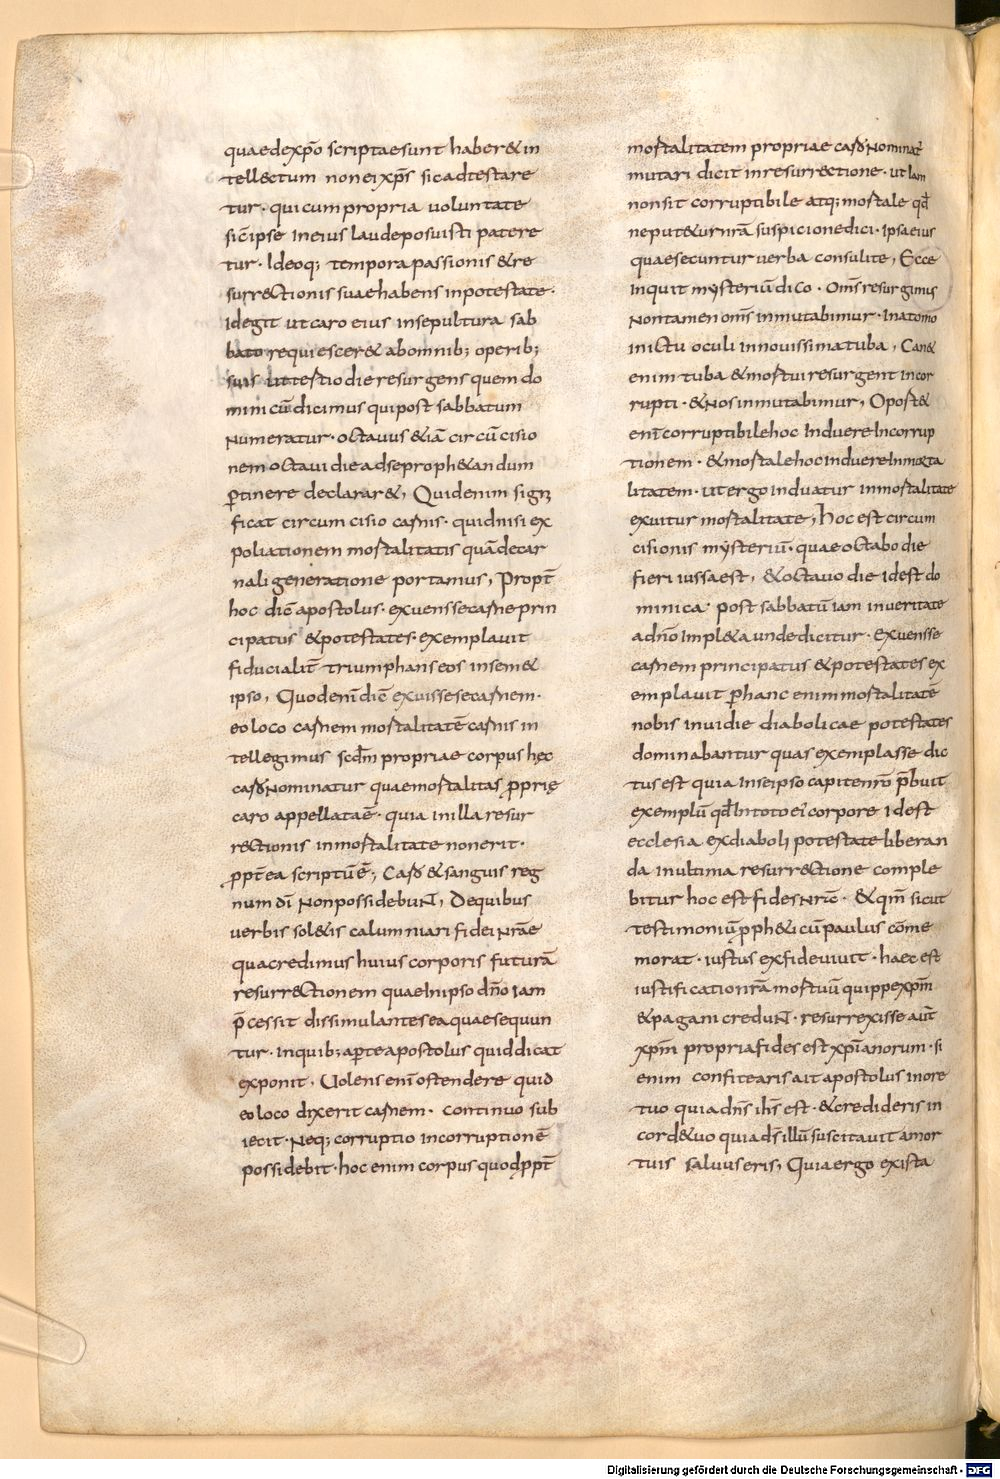 quaedexp̄o scriptaesunt haber&in
tell&ctum noneixp̄s sicadtestare
tur· quicumpropria uoluntate
sic̄ipse Ineius laudeposuisti patere
tur· Ideoq; temporapassionis &re
surr&ctionis suaehabens inpotestate·
Idegit utcaro eius insepultura sab
bato requiescer&abomnib; operib;
suis uttertiodieresurgens quemdo
minicū dicimus quipost sabbatum
Numeratur· octauus &iā circūcisio
nem octaui diead se proph&andum
ꝑtinere declarar&, Quidenim signi
ficat circumcisio carnis· quidnisi ex
poliationem mortalitatis quādecar
naligeneratione portamus, Propt̄
hoc dic̄ apostolus· exuenssecarne prin
cipatus &potestates· exemplauit
fiducialit̄ triumphans eos insem&
ipso, Quodenī dic̄ exuissesecarnem·
eoloco carnem mortalitatē carnis in
tellegimus scdm̄ propriae corpus hęc
carō Nominatur quaemortalitas ꝓprię
caro appellataē· quia inilla resur
r&ctionis inmortalitate nonerit·
ꝓpt̄ea scriptūē; Carō &sanguis reg
num dī Nonpossidebunt, Dequibus
uerbis sol&is calumniari fidei nr̄ae
quacredimus huius corporis futurā
resurr&ctionem quaeInipso dn̄o iam
p̄cessit dissimulantes ea quaesequun
tur· inquib; aꝑte apostolus quiddicat
exponit, Uolens enī ostendere quid
eoloco dixerit carnem· continuo sub
iecit· Neq; corruptio incorruptionē
possidebit· hoc enim corpus quodꝓpt̄
mortalitatem propriae carō Nominat̄
mutari dicit inresurr&ctione· ut Iam
nonsit corruptibile atq; mortale qđ
neput&urnr̄ā suspicionedici· Ipsaeius
quaesecuntur uerba consulite, Ecce
Inquit mysteriū dico· Om̄s resurgimus
Nontamen om̄s inmutabimur· Inatomo
inictu oculi Innouissimatuba, Can&
enim tuba &mortui resurgent incor
rupti· &nos inmutabimur, Oport&
enī corruptibilehoc Induere Incorrup
tionem· &mortalehoc induere Inmorta
litatem· ut ergo induatur inmortalitate
exuitur mortalitate, hoc est circum
cisionis mysteriū· quae octabo die
fieri iussaest, &octauo die idest do
minica· post sabbatū iam inueritate
adn̄o Impl&a unde dicitur· Exuensse
carnem principatus &potestates ex
emplauit ꝑhanc enim mortalitatē
nobis inuidie diabolicae potestates
dominabantur quas exemplasse dic
tus est quia Inseipso capitenr̄o p̄buit
exemplū qđ Intoto ei' corpore idest
ecclesia exdiaboli potestate liberan
da inultima resurr&ctione comple
bitur hoc est fides nr̄ae· &qm̄ sicut
testimoniū ꝓph&icū paulus cōme
morat· iustus exfide uiuit· haec est
iustificationr̄ā mortuū quippexpm̄
&pagani credunt· resurrexisse aut̄
xpm̄ propria fides est xpīanorum· si
enim confitearis ait apostolus inore
tuo quia dn̄s ihs̄ est· &credideris in
cord&uo quia ds̄ illū suscitauit amor
tuis saluus eris, Quia ergo exista
Digitalisierung gefördert durch die Deutsche Forschungsgemeinschaft - DFG